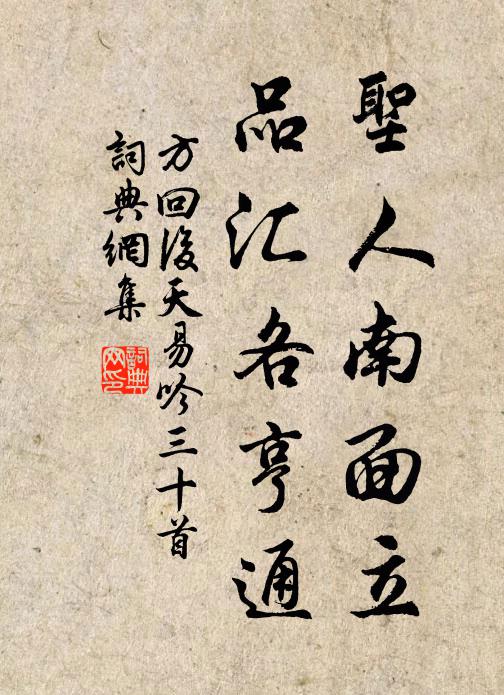 聖人南面立
品汇各亨通
方回後天易吟三十首
詞典網集
詞典網印